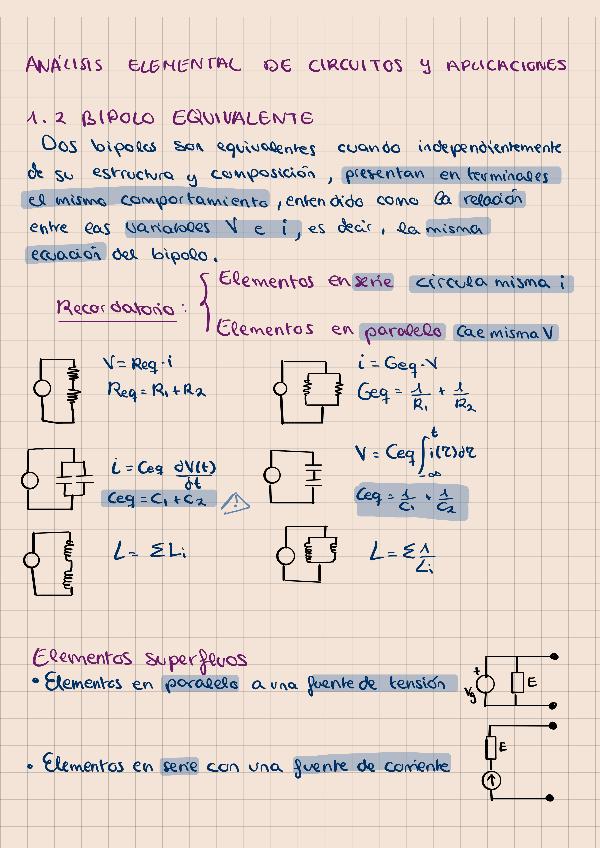 ANÁLISIS ELEMENTAL DE CIRCUITOS Y APLICACIONES
1.2 BIPOLO EQUIVALENTE
Dos bipolos son equivalentes cuando independientemente
de su estructura y composición, presentan en terminales
el mismo comportamiento, entendido como la relación
entre las variables V e i, es decir, la misma
ecuación del bipolo.
Recordatorio:
Elementos en serie circula misma i
Elementos en paralelo cae misma V
V = Req · i
Req = R1 + R2
i = Geq · V
Geq = 1/R1 + 1/R2
i = Ceq dV(t)/dt
Ceq = C1 + C2
!
V = Ceq ∫_{-∞}^{t} i(τ)dτ
Ceq = 1/C1 + 1/C2
L = ΣLi
L = Σ 1/Li
Elementos superfluos
• Elementos en paralelo a una fuente de tensión
+
Vg
E
• Elementos en serie con una fuente de corriente
E